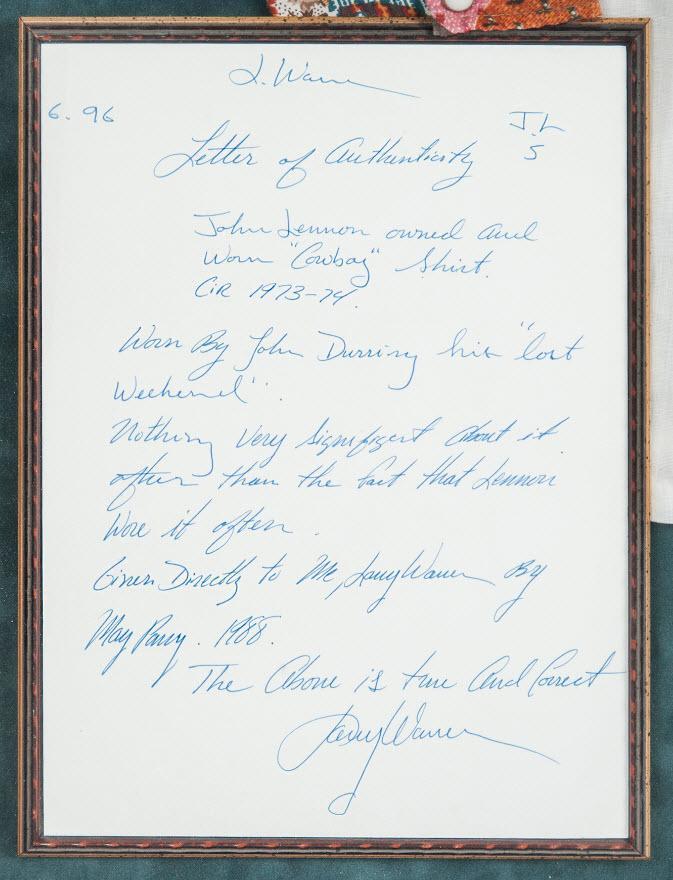 L. Warren
6. 96
J.L
5
Letter of Authenticity
John Lennon owned and
Worn "Cowboy" Shirt.
CiR 1973-74.
Worn By John Durring his "lost
Weekend".
Nothing very significant about it
other than the fact that Lennon
Wore it often.
Given Directly to Me, Larry Warren By
May Pang. 1988.
The Above is true And Correct
Larry Warren